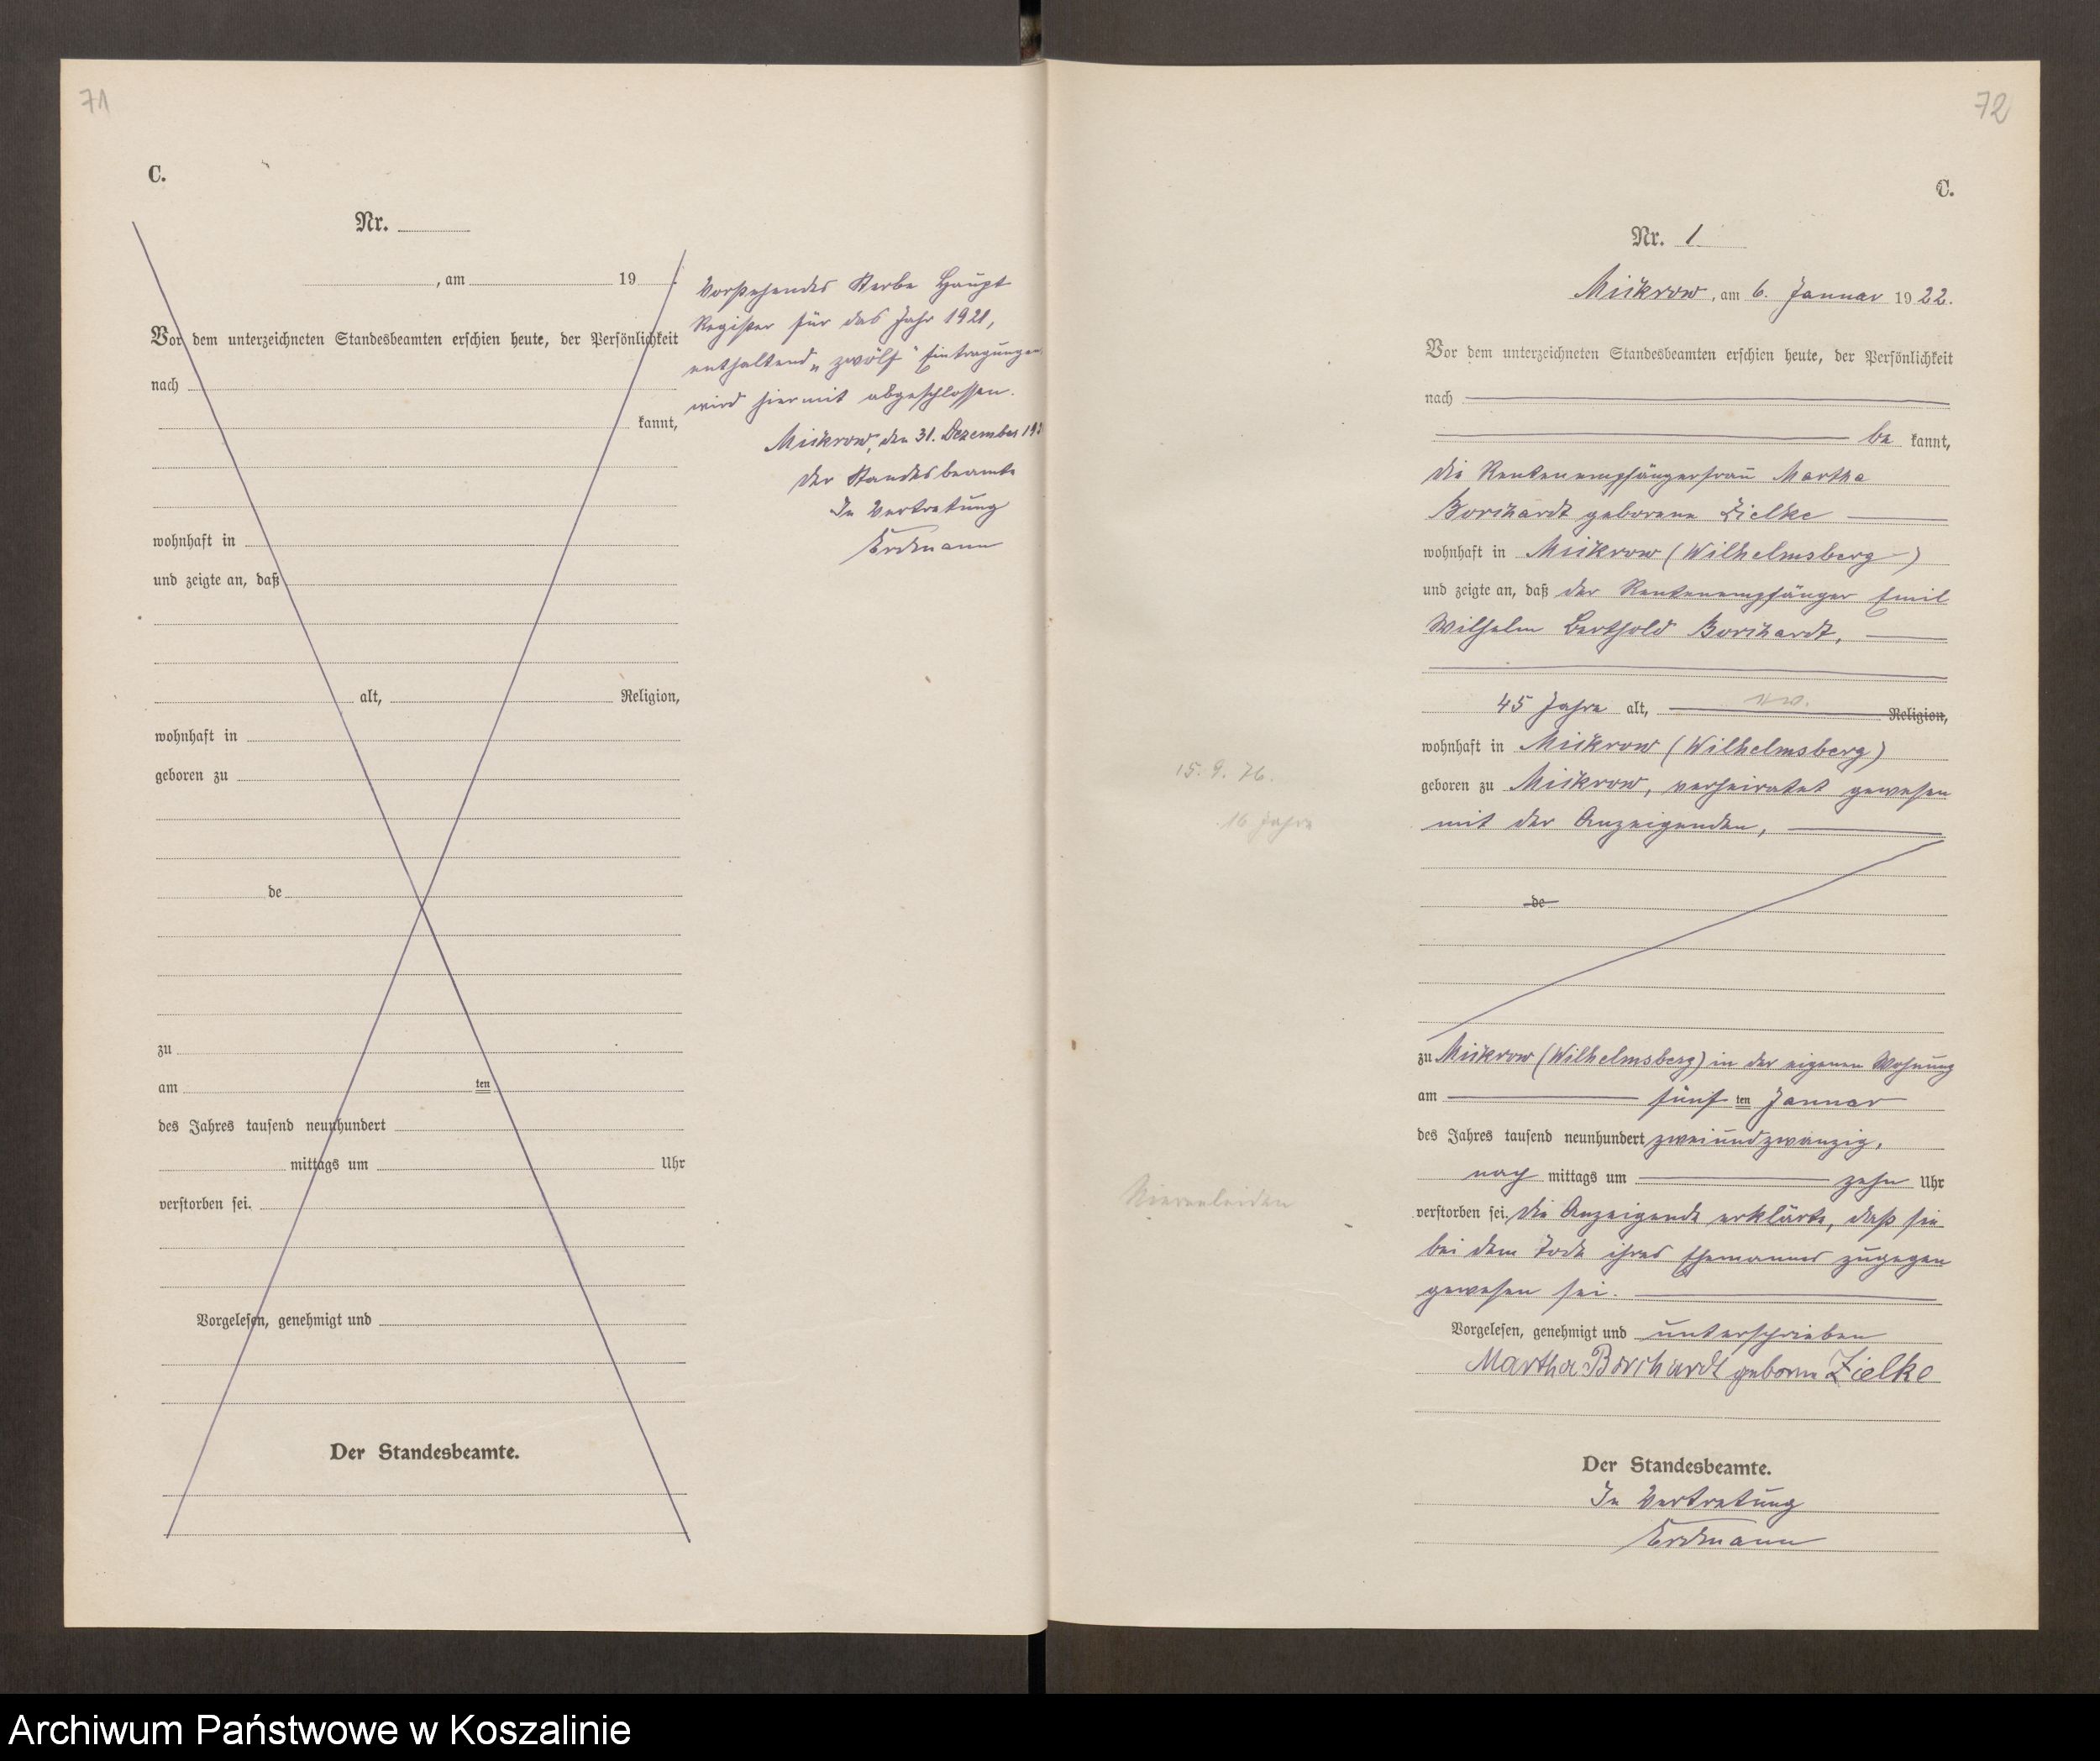 71
C.
Nr.
, am 19 .
Vor dem unterzeichneten Standesbeamten erschien heute, der Persönlichkeit
nach
kannt,
wohnhaft in
und zeigte an, daß
alt, Religion,
wohnhaft in
geboren zu
de
zu
am ten
des Jahres tausend neunhundert
mittags um Uhr
verstorben sei.
Vorgelesen, genehmigt und
Der Standesbeamte.
Vorstehendes Sterbe Haupt
Register für das Jahr 1921,
enthaltend „zwölf" Eintragungen,
wird hiermit abgeschlossen.
Mickrow, den 31. Dezember
Der Standesbeamte
In Vertretung
Erdmann
72
C.
Nr. 1
Mickrow, am 6. Januar 1922.
Vor dem unterzeichneten Standesbeamten erschien heute, der Persönlichkeit
nach
be kannt,
die Rentenempfängerfrau Martha
Borchardt geborene Zielke
wohnhaft in Mickrow (Wilhelmsberg)
und zeigte an, daß der Rentenempfänger Emil
Wilhelm Berthold Borchardt,
45 Jahre alt, Religion,
wohnhaft in Mickrow (Wilhelmsberg)
geboren zu Mickrow, verheiratet gewesen
mit der Anzeigenden,
de
zu Mickrow (Wilhelmsberg) in der eigenen Wohnung
am fünf ten Januar
des Jahres tausend neunhundert zweiundzwanzig,
nach mittags um zehn Uhr
verstorben sei. Die Anzeigende erklärte, daß sie
bei dem Tode ihres Ehemannes zugegen
gewesen sei.
Vorgelesen, genehmigt und unterschrieben
Martha Borchardt geborne Zielke
Der Standesbeamte.
In Vertretung
Erdmann
15. 9. 76.
16 Jahre
Nierenleiden
Archiwum Państwowe w Koszalinie